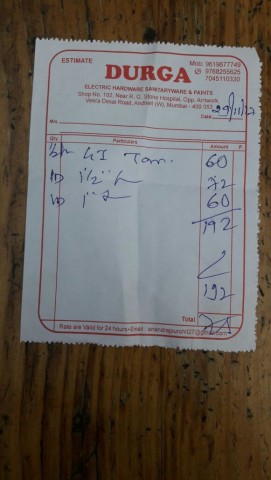 ESTIMATE
Mob: 9619677749
9768255625
7045110330
DURGA
ELECTRIC HARDWARE SANITARYWARE & PAINTS
Shop No. 102, Near R. G. Stone Hospital, Opp. Airtwork,
Veera Desai Road, Andheri (W), Mumbai - 400 053.
Date 29/11/17
M/s.
Qty. Particulars Amount P.
GI 60
10 1½" 72
10 1" 60
192
192
Total
Rate are Valid for 24 hours • Email :